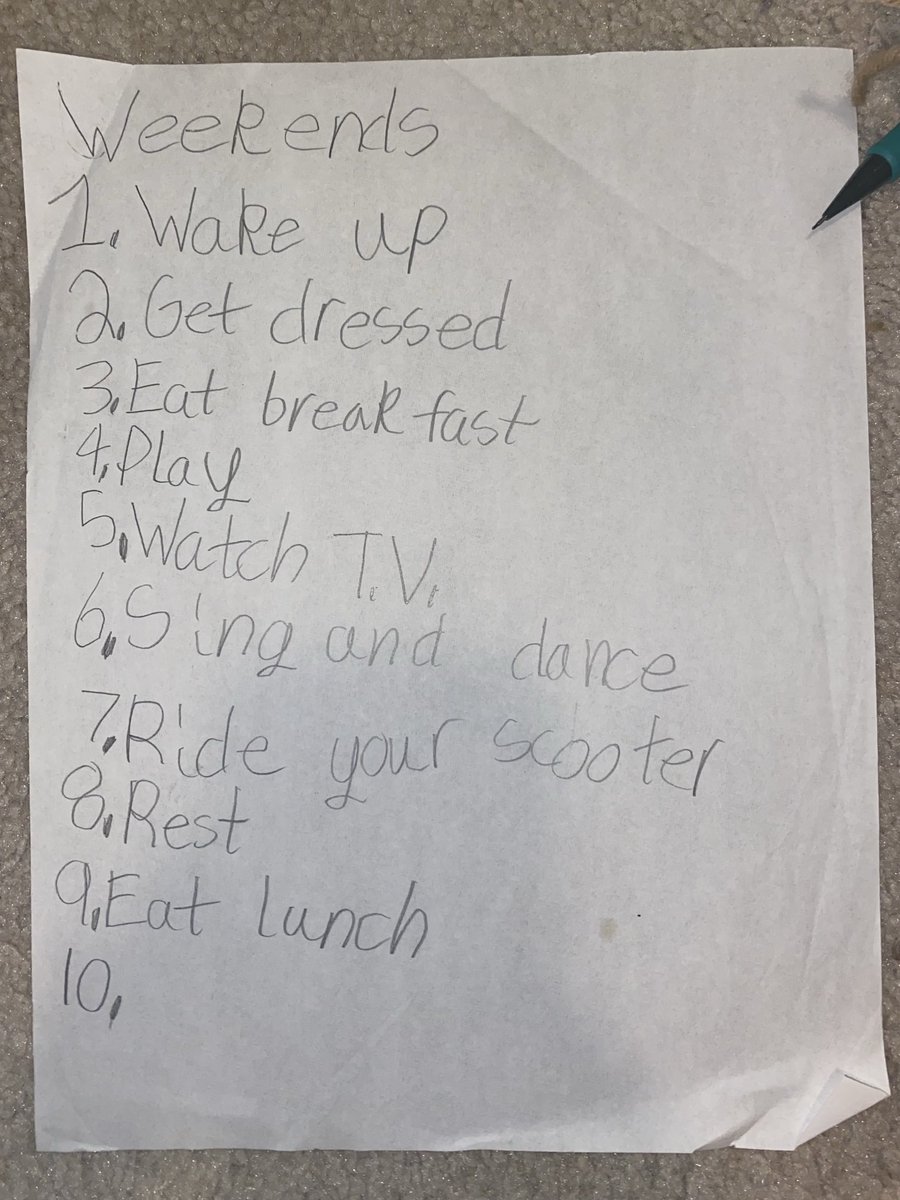 Weekends
1. Wake up
2. Get dressed
3. Eat breakfast
4. Play
5. Watch T.V.
6. Sing and dance
7. Ride your scooter
8. Rest
9. Eat lunch
10.